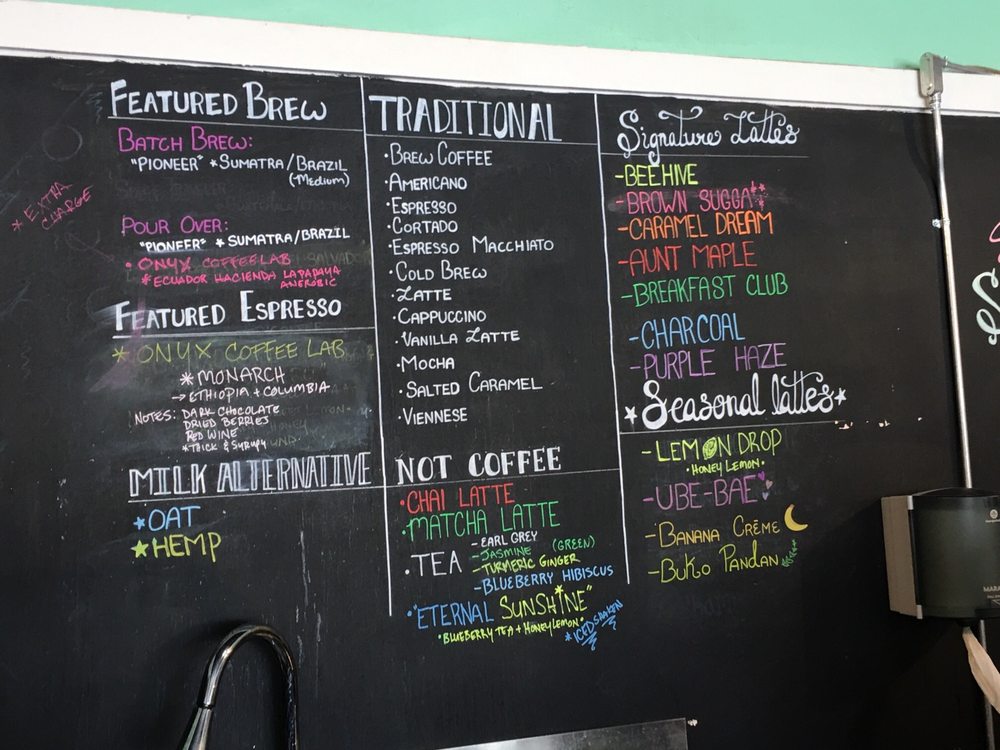 * EXTRA
CHARGE
FEATURED BREW
BATCH BREW:
"PIONEER" *SUMATRA/BRAZIL
(MEDIUM)
POUR OVER:
"PIONEER" *SUMATRA/BRAZIL
• ONYX COFFEE LAB
*ECUADOR HACIENDA LA PAPAYA
ANEROBIC
FEATURED ESPRESSO
* ONYX COFFEE LAB
*MONARCH
→ETHIOPIA + COLUMBIA
NOTES: DARK CHOCOLATE
DRIED BERRIES
RED WINE
*THICK & SYRUPY
MILK ALTERNATIVE
★OAT
★HEMP
TRADITIONAL
•BREW COFFEE
•AMERICANO
•ESPRESSO
•CORTADO
•ESPRESSO MACCHIATO
•COLD BREW
•LATTE
•CAPPUCCINO
•VANILLA LATTE
•MOCHA
•SALTED CARAMEL
•VIENNESE
NOT COFFEE
•CHAI LATTE
•MATCHA LATTE
•TEA
-EARL GREY
-JASMINE (GREEN)
-TURMERIC GINGER
-BLUEBERRY HIBISCUS
•"ETERNAL SUNSHINE"
•BLUEBERRY TEA + HONEY LEMON•
*ICED SHAKEN
Signature Lattes
-BEEHIVE
-BROWN SUGGA
-CARAMEL DREAM
-AUNT MAPLE
-BREAKFAST CLUB
-CHARCOAL
-PURPLE HAZE
★Seasonal lattes★
-LEMON DROP
•HONEY LEMON•
-UBE-BAE
-BANANA CRÈME
-BUKO PANDAN